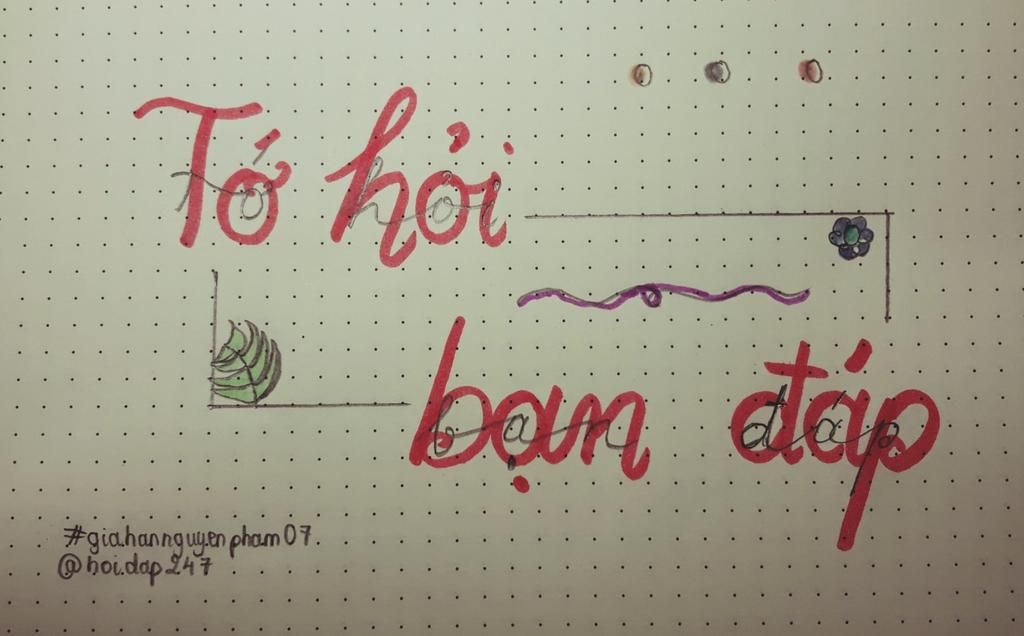 Tớ hỏi
bạn đáp
#gia.hannguyenpham07.
@hoi.dap247